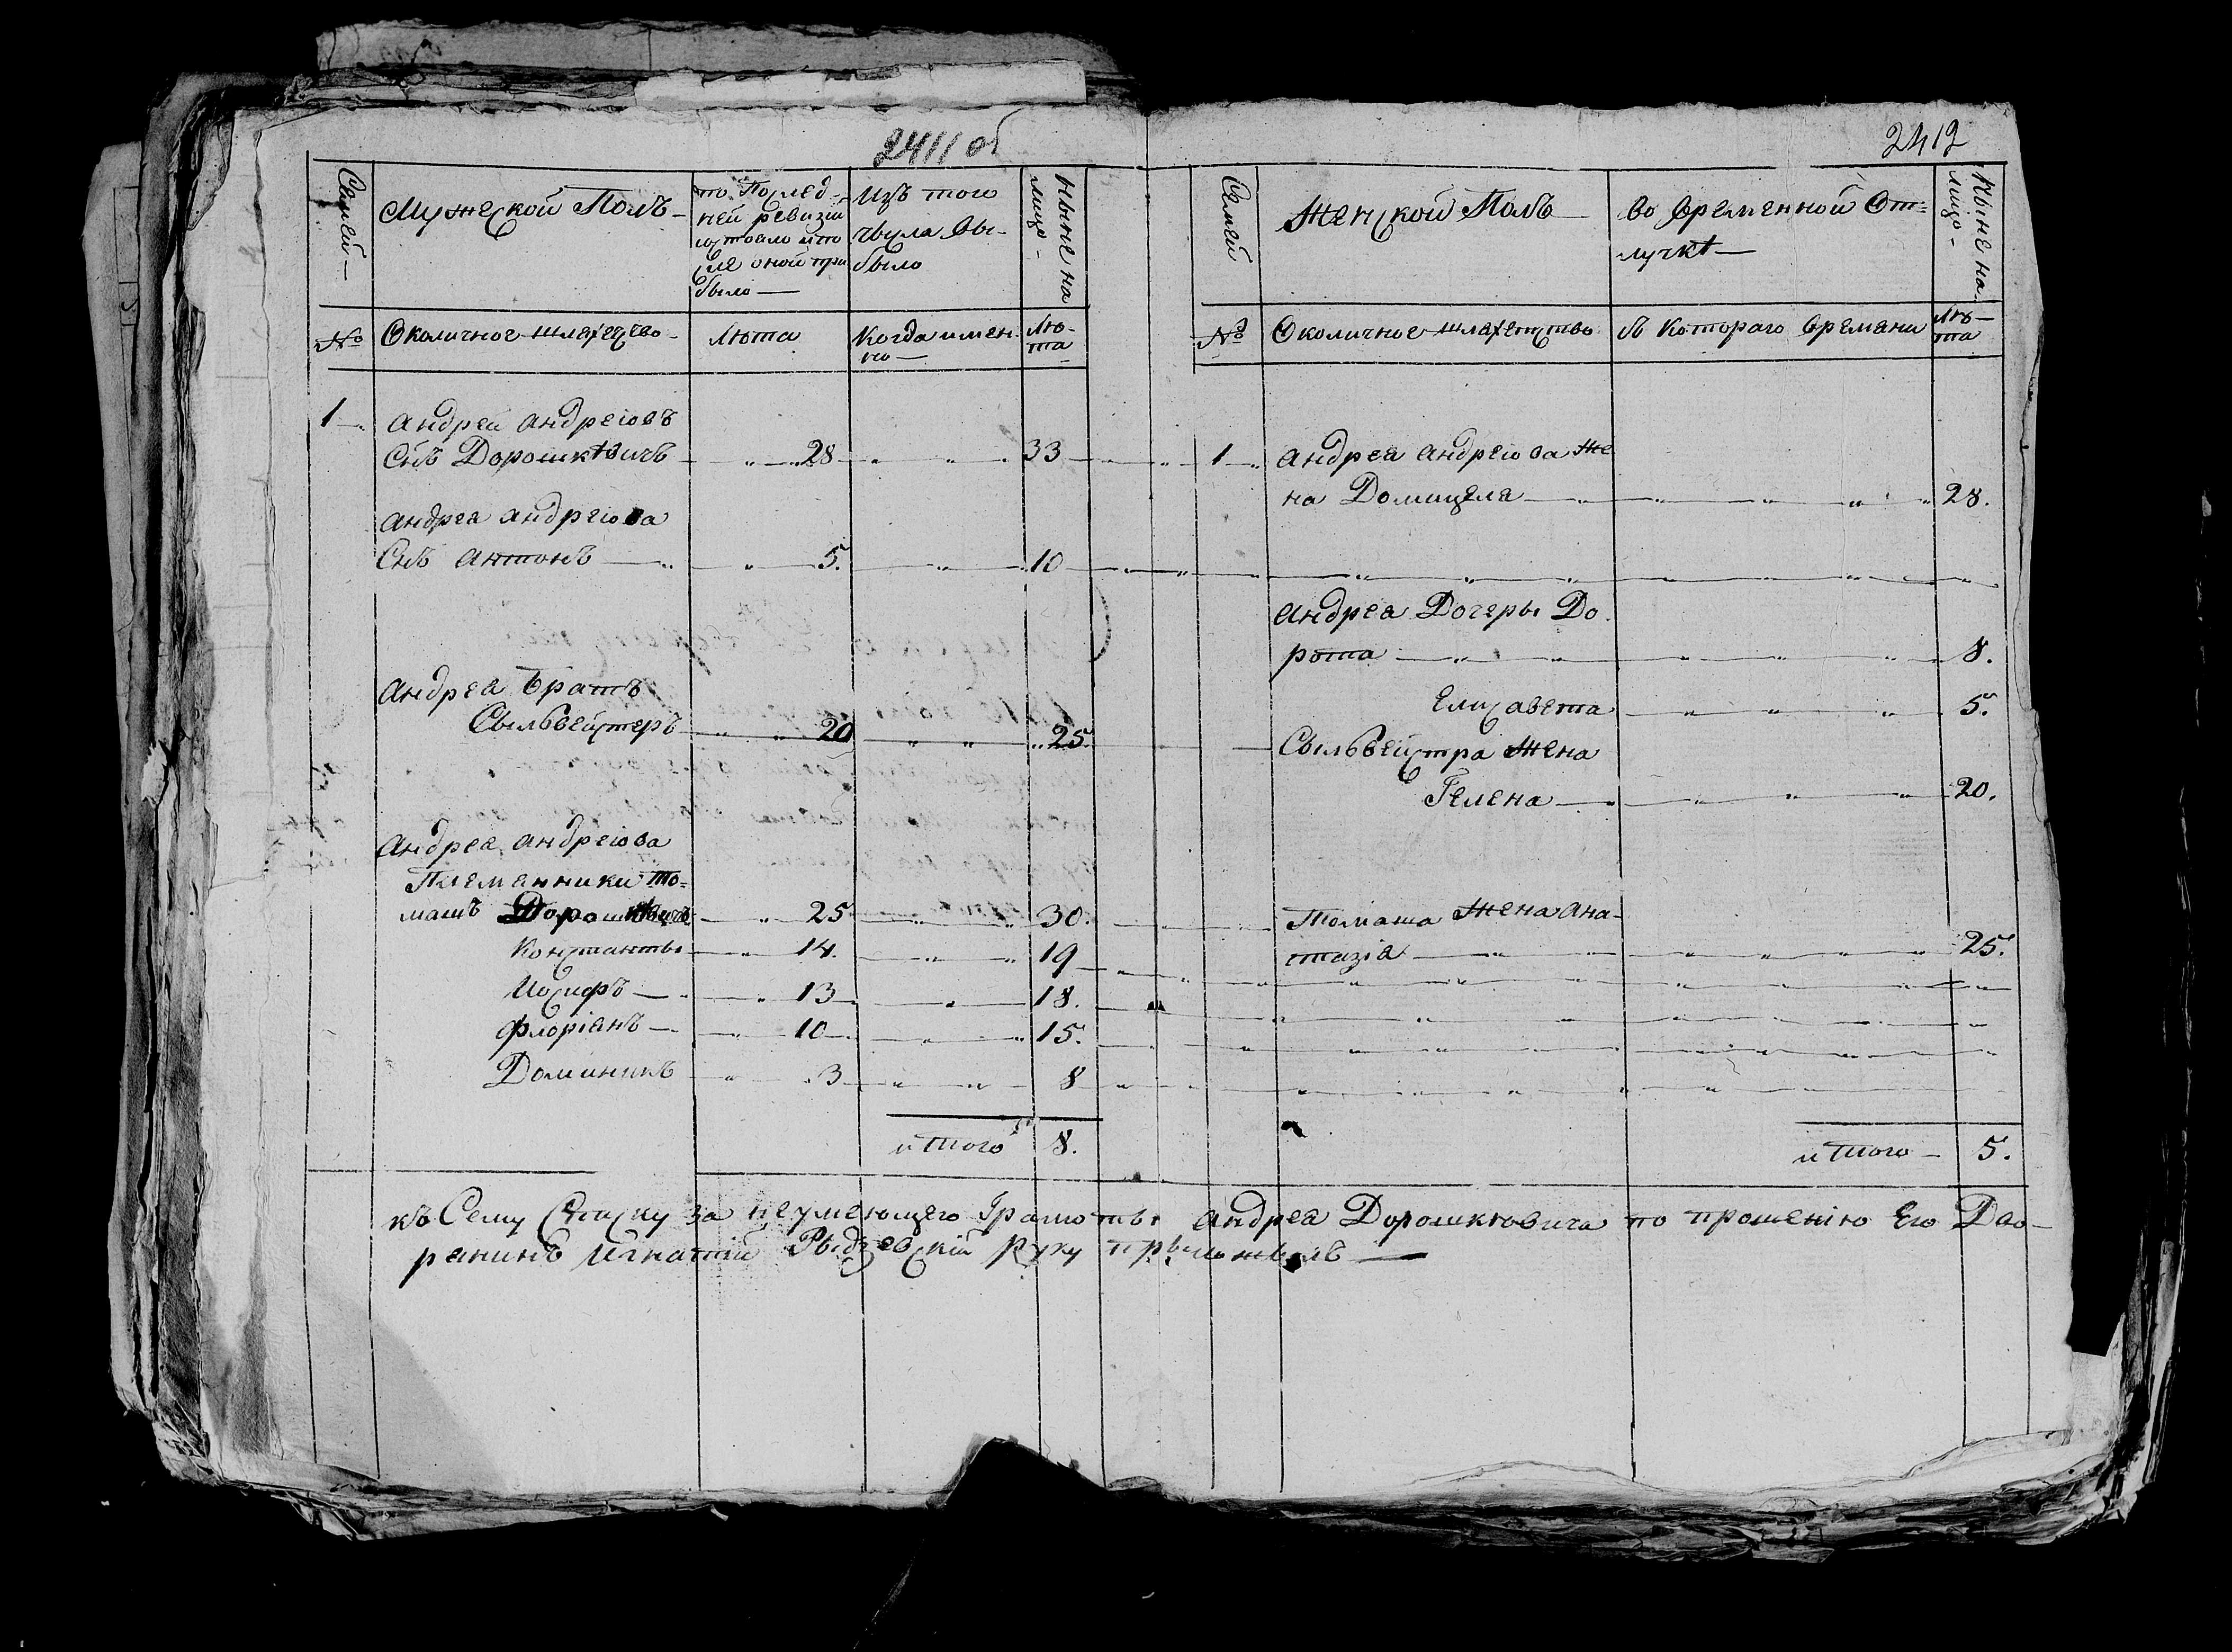 2411 об
Семей
Мужеской Полъ
по послед
ней ревизіи
состояло и по
сле оной при
было
Изъ того
числа вы
было
Ныне на
лицо
№
Околичное шляхецтво
Лета
Когда имен
но
Ле
та
1
Андрей Андреіовъ
Снъ Дорошкѣвичъ 28 33
Андреа Андреіова
Снъ Антонъ 5. 10
Андреа Братъ
Сыльвейстеръ 20 25.
Андреа Андреіова
Племянники То=
машъ Дорошкѣвичъ 25 30.
Константы 14. 19
Иосифъ 13 18.
Флоріанъ 10 15.
Доминикъ 3 8
итого 8.
2412
Семей
Женской Полъ
во временной От=
лучкѣ
Ныне на
лицо
№
Околичное шляхетство
съ Котораго времени
Лѣ
та
1 Андреа Андреіова Же
на Домицеля 28.
Андреа Дочеры До
рота 8.
Елисавета 5.
Сыльвейстра Жена
Гелена 20.
Томаша Жена Ана
стазіа 25.
итого 5.
къ Сему Списку за неумеющего Грамоты Андреа Дорошкѣвича по прошенію Его Дво
ранинъ Игнатій руку прыложылъ